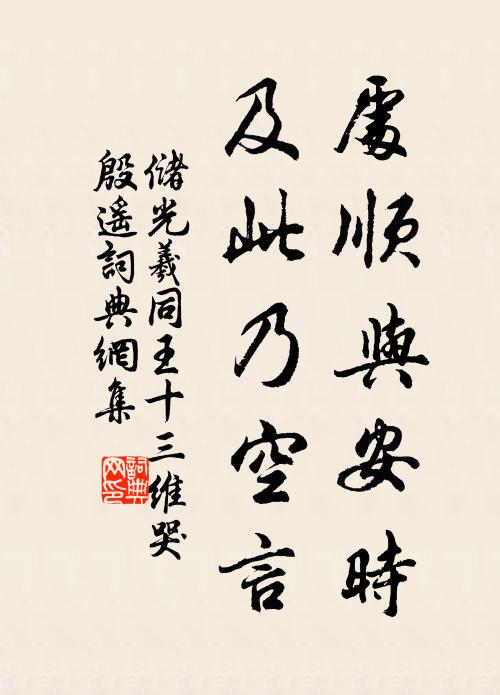 處順與安時
及此乃空言
儲光羲同王十三維哭
殷遥詞典網集
詞典
网印